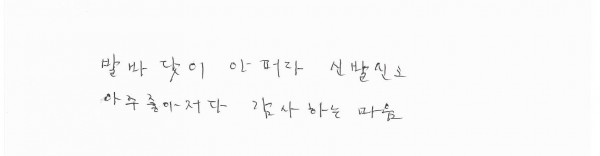 발바닻이 아퍼라 신발신소
아주졸아저다 감사하는 마음